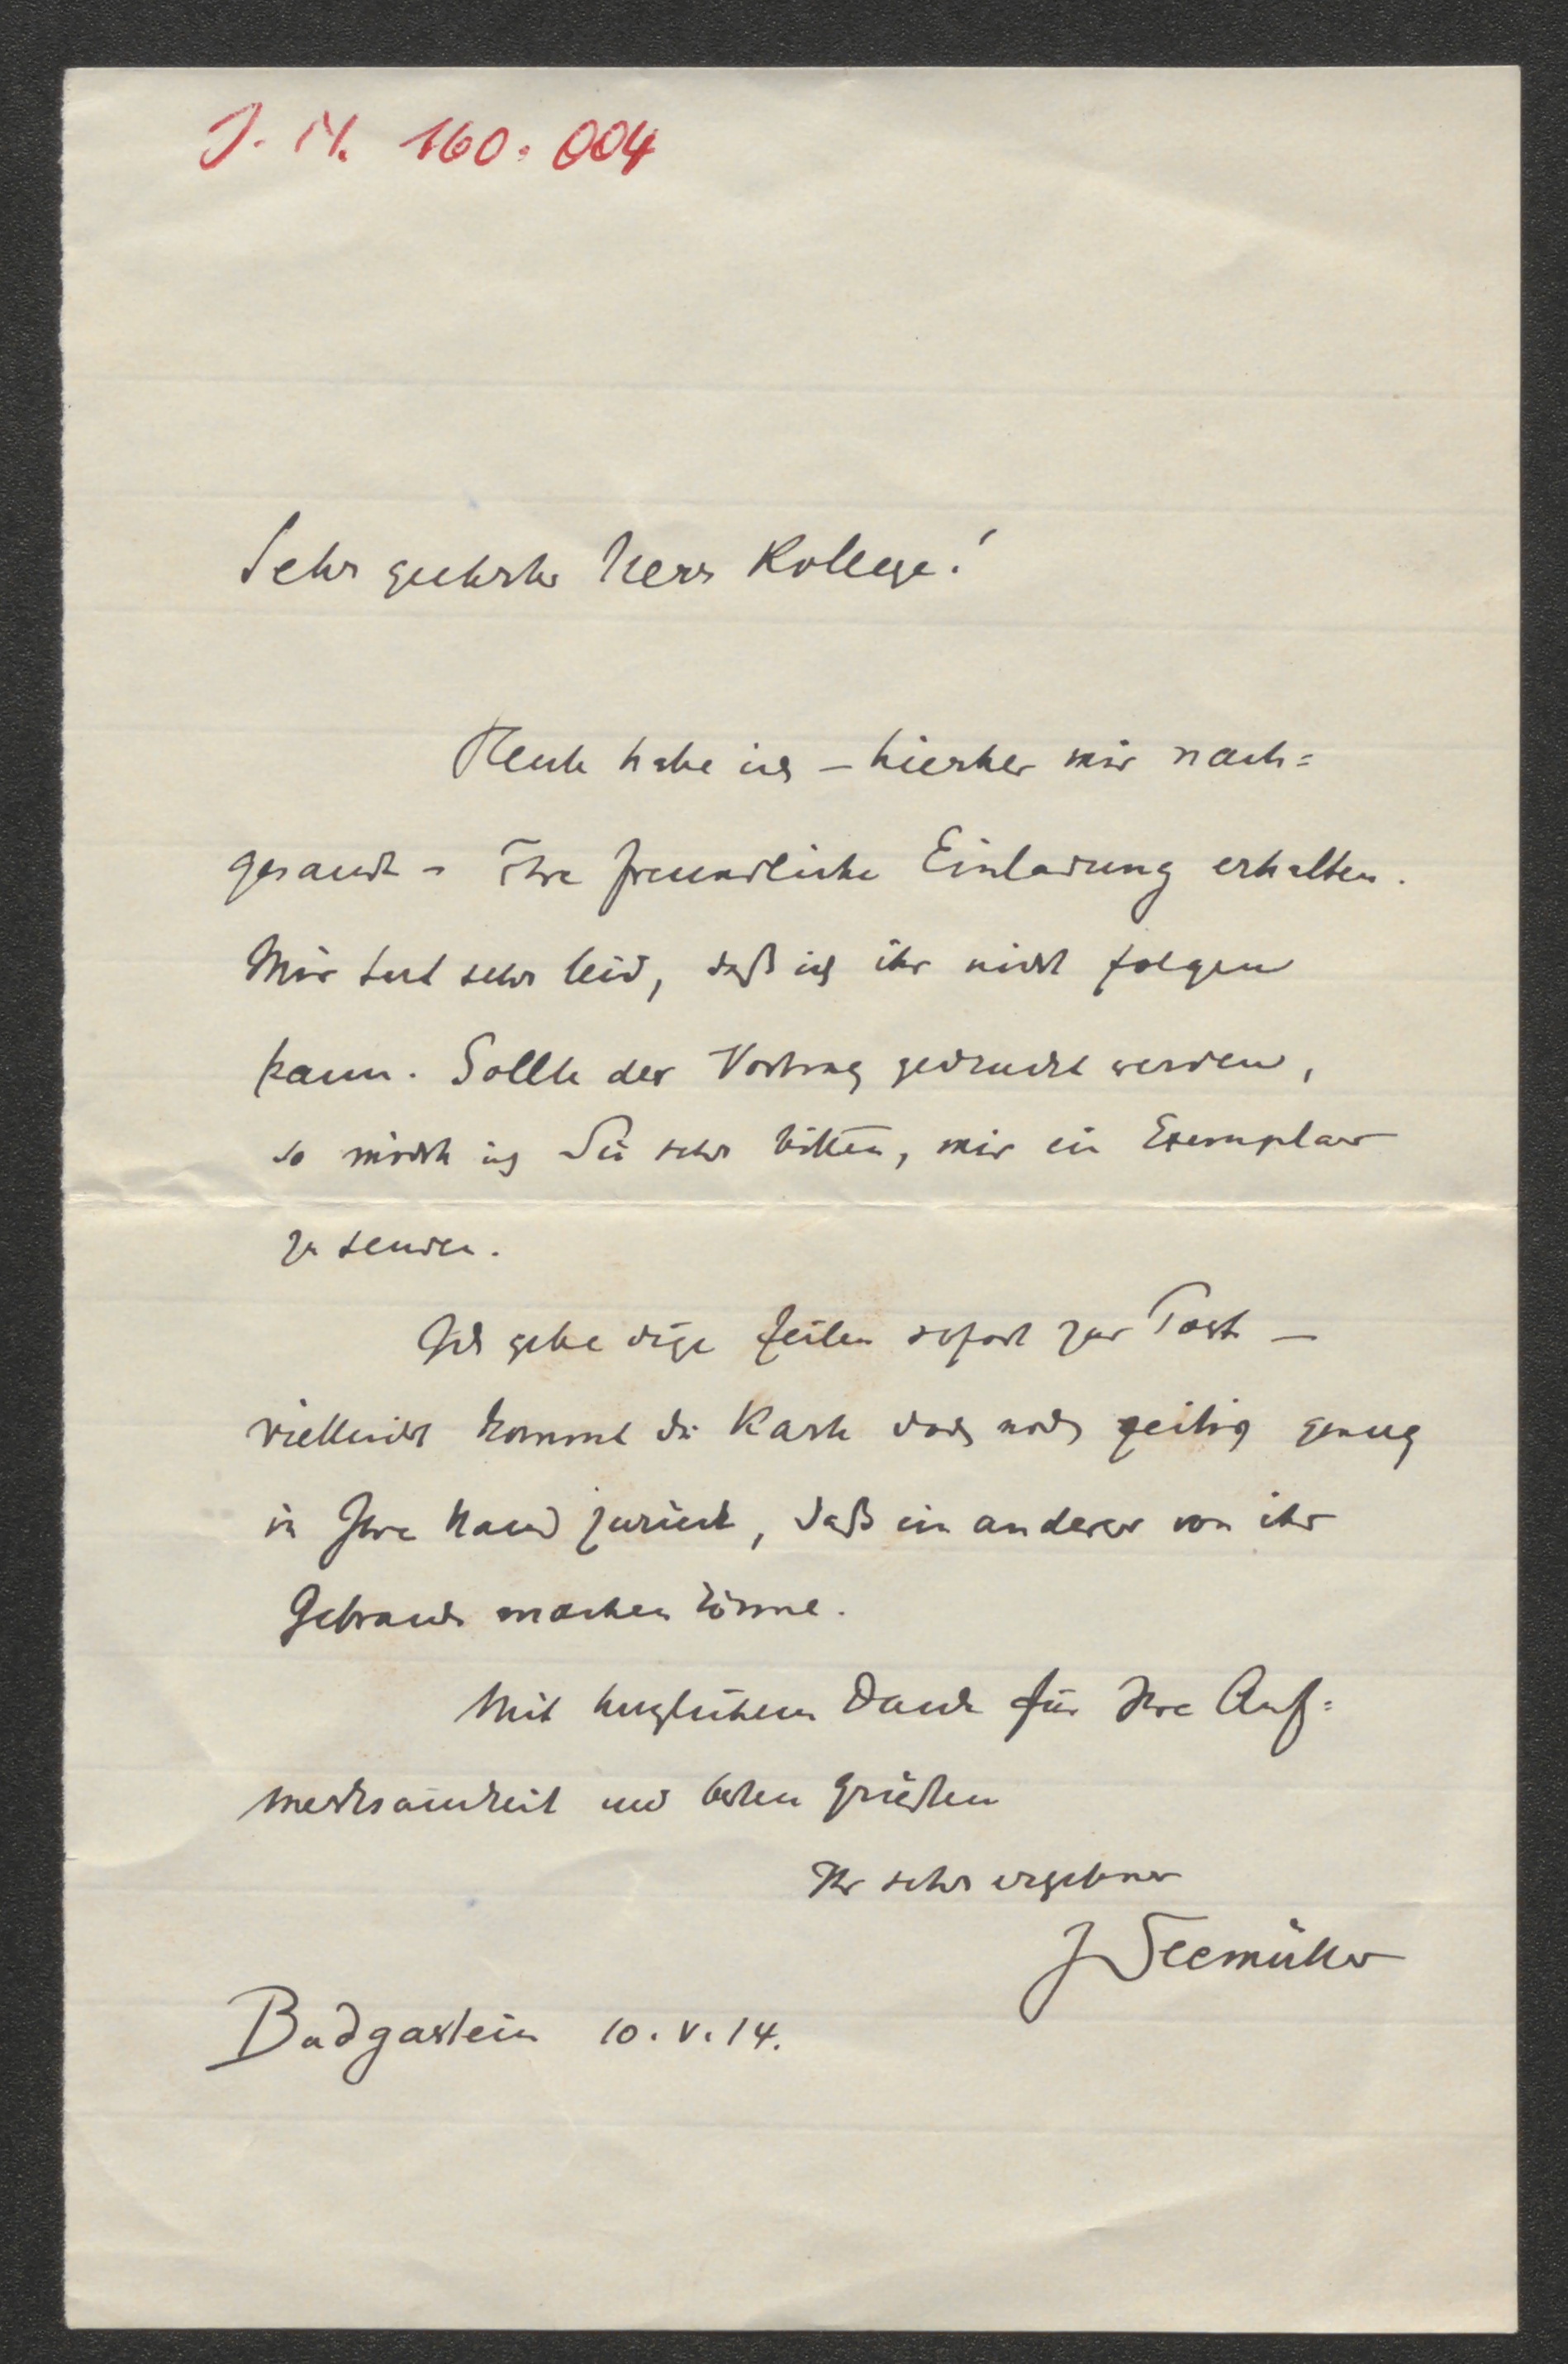 J. N. 160.004
Sehr geehrter Herr Kollege!
Heute habe ich – hierher mir nach=
gesandt – Ihre freundliche Einladung erhalten.
Mir tut sehr leid, daß ich ihr nicht folgen
kann. Sollte der Vortrag gedruckt werden,
so möcht ich Sie sehr bitten, mir ein Exemplar
zu senden.
Ich gebe diese Zeilen sofort zur Post –
vielleicht kommt die Karte doch noch zeitig genug
in Ihre Hand zurück, daß ein anderer von ihr
Gebrauch machen könne.
Mit herzlichem Dank für Ihre Auf=
merksamkeit und besten Grüßen
Ihr sehr ergebner
J Seemüller
Badgastein 10. V. 14.